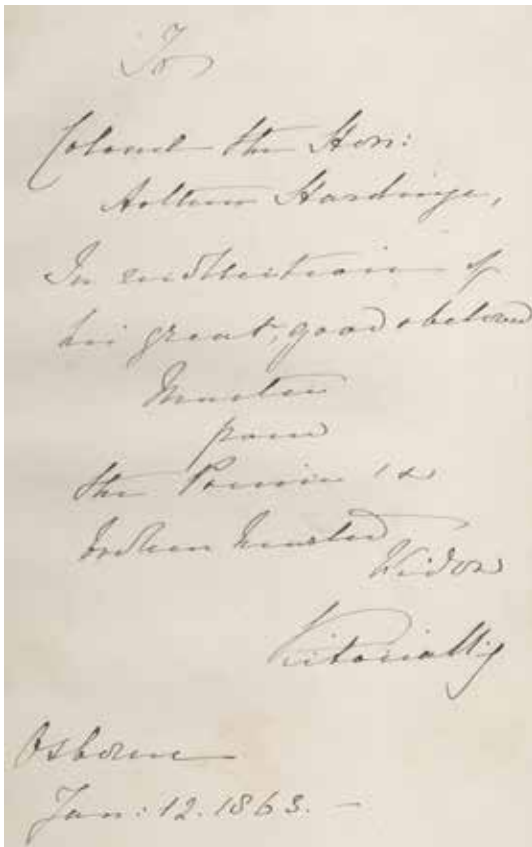 To
Colonel the Hon:
Arthur Hardinge,
In recollection of
his great, good & beloved
Master
from
the Prince's
broken hearted
Widow
Victoria R
Osborne
Jan: 12. 1863. —